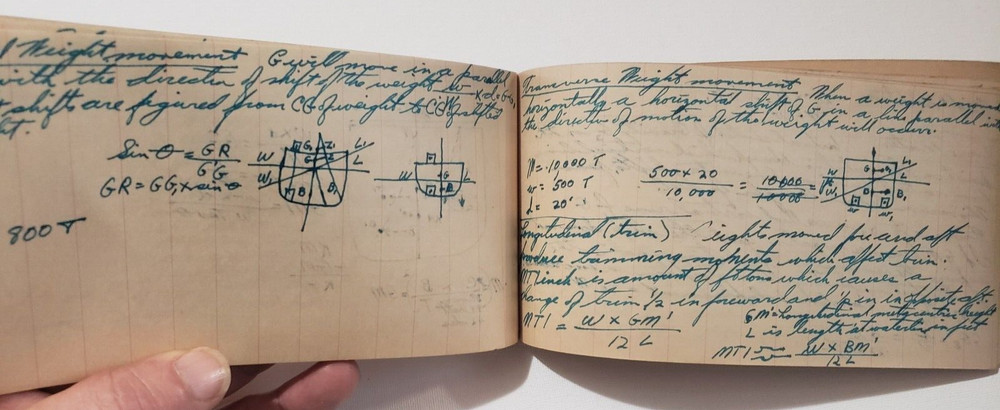 Weight movement G will move in a parallel
with the direction of shift of the weight w x d = GG1
shifts are figured from CG of weight to CG of shifted
wt.
Sin θ = GR / G'G
GR = GG, x sin θ
W L1
W1 L
G
B B1
W
G
B
800T
Transverse Weight movement When a weight is moved
horizontally a horizontal shift of G in a line parallel in
the direction of motion of the weight will occur.
M = 10,000 T
w = 500 T
L = 20'
500 x 20 / 10,000 = 10000 / 10000 =
W L1
W1 L
G
B B1
w w
Longitudinal (trim) weights moved fore and aft
produce trimming moments which affect trim.
MT1 inch is amount of ft tons which causes a
change of trim 1/2 in foreward and 1/2 in in opposite aft.
MT1 = W X GM' / 12 L
GM' = Longitudinal metacentric height
L is length at waterline in feet
MT1 = W X BM' / 12 L